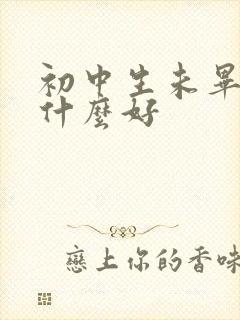 初中生未畢
什麼好
戀上你的香味